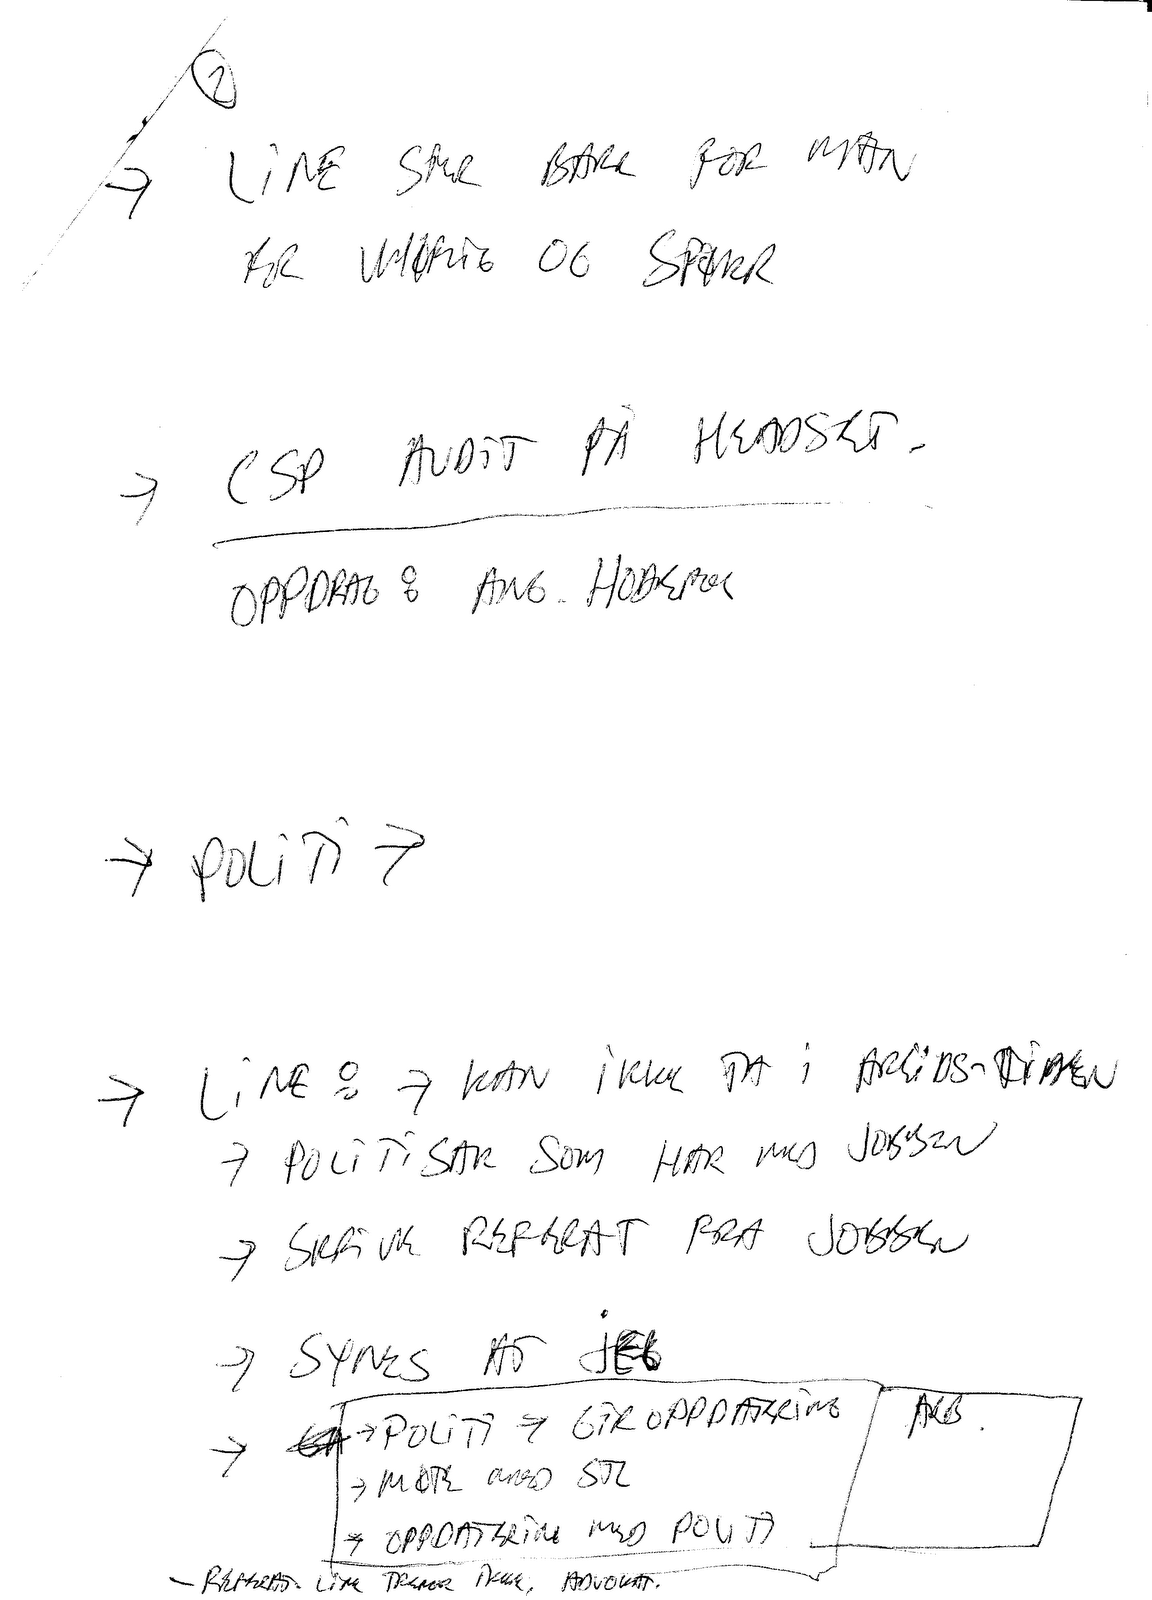 2
→ LINE SIER BARE FOR MAN
ER UHØFLIG OG SPØRR
→ CSP AUDIT PÅ HEADSET.
OPPDRAG: ANG.
→ POLITI →
→ LINE: → KAN IKKE TA I ARBEIDS-TIDEN
→ POLITISAK SOM HAR MED JOBBEN
→ SKRIVE REFERAT FRA JOBBEN
→ SYNES AT JEG
→ → POLITI → GIR OPPDATERING ARB.
→ MØTE MED STL
→ OPPDATERING MED POLITI
- REFERAT. LINE IKKE, ADVOKAT.